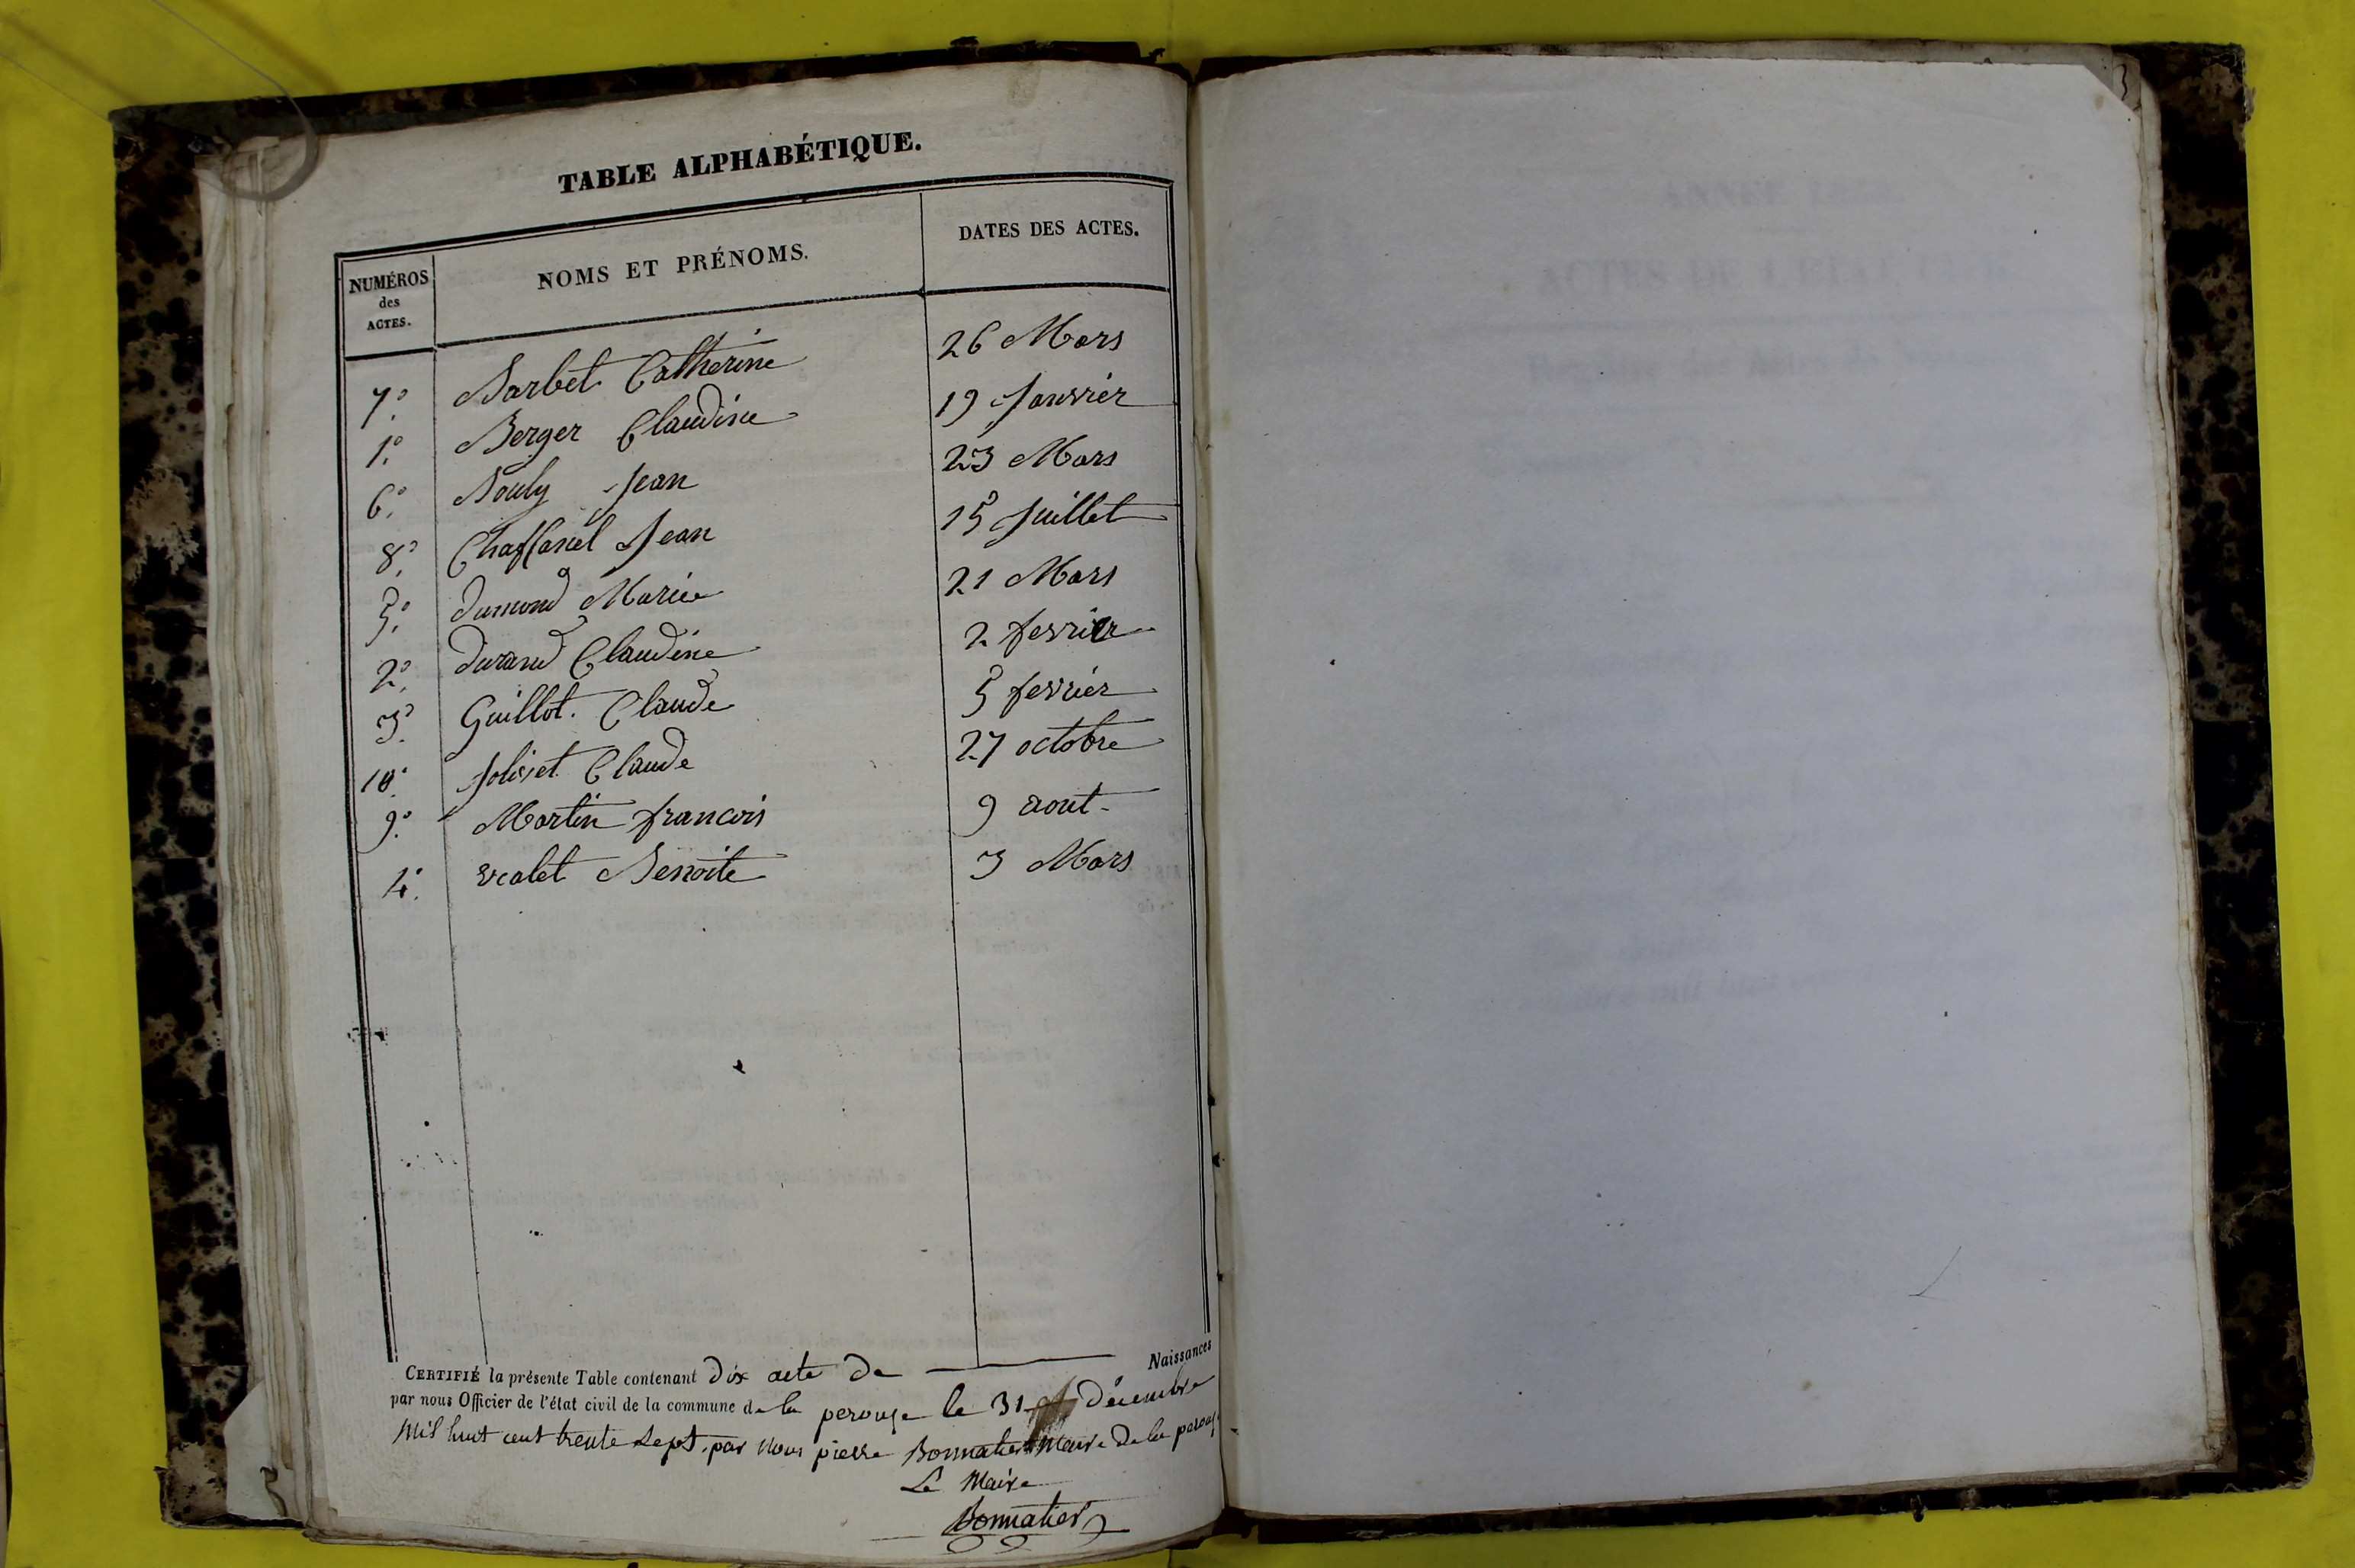 TABLE ALPHABÉTIQUE.
NUMÉROS des ACTES. NOMS ET PRÉNOMS. DATES DES ACTES.
7.° Barbet Catherine 26 Mars
1.° Berger Claudine 19 Janvier
6.° Bouly Jean 23 Mars
8.° Chaffanel Jean 15 Juillet
5.° dumond Marie 21 Mars
2.° durand Claudine 2 fevrier
3.° Guillot Claude 5 fevrier
10.° Jolivet Claude 27 octobre
9.° Martin francois 9 aout
4.° vialet Benoite 3 Mars
CERTIFIÉ la présente Table contenant Dix acte De Naissances
par nous Officier de l'état civil de la commune de la perouse le 31 Décembre
Mil huit cent trente sept, par Nous pierre Bonnatier Maire De la perouse
Le Maire
Bonnatier
ANNÉE
ACTES DE L'ÉTAT CIVIL
Registre des Actes de